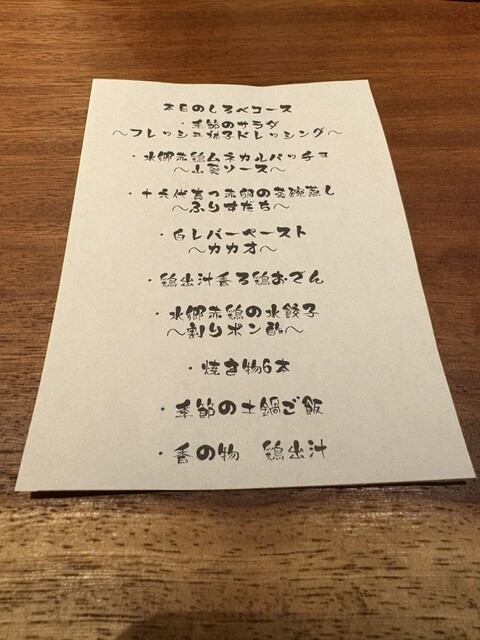 本日のしろべコース
・季節のサラダ
〜フレッシュ柚子ドレッシング〜
・水郷赤鶏ムネカルパッチョ
〜山葵ソース〜
・十六代真っ赤卵の茶碗蒸し
〜ふりすだち〜
・白レバーペースト
〜カカオ〜
・鶏出汁香る鶏おでん
・水郷赤鶏の水餃子
〜割りポン酢〜
・焼き物6本
・季節の土鍋ご飯
・香の物　鶏出汁